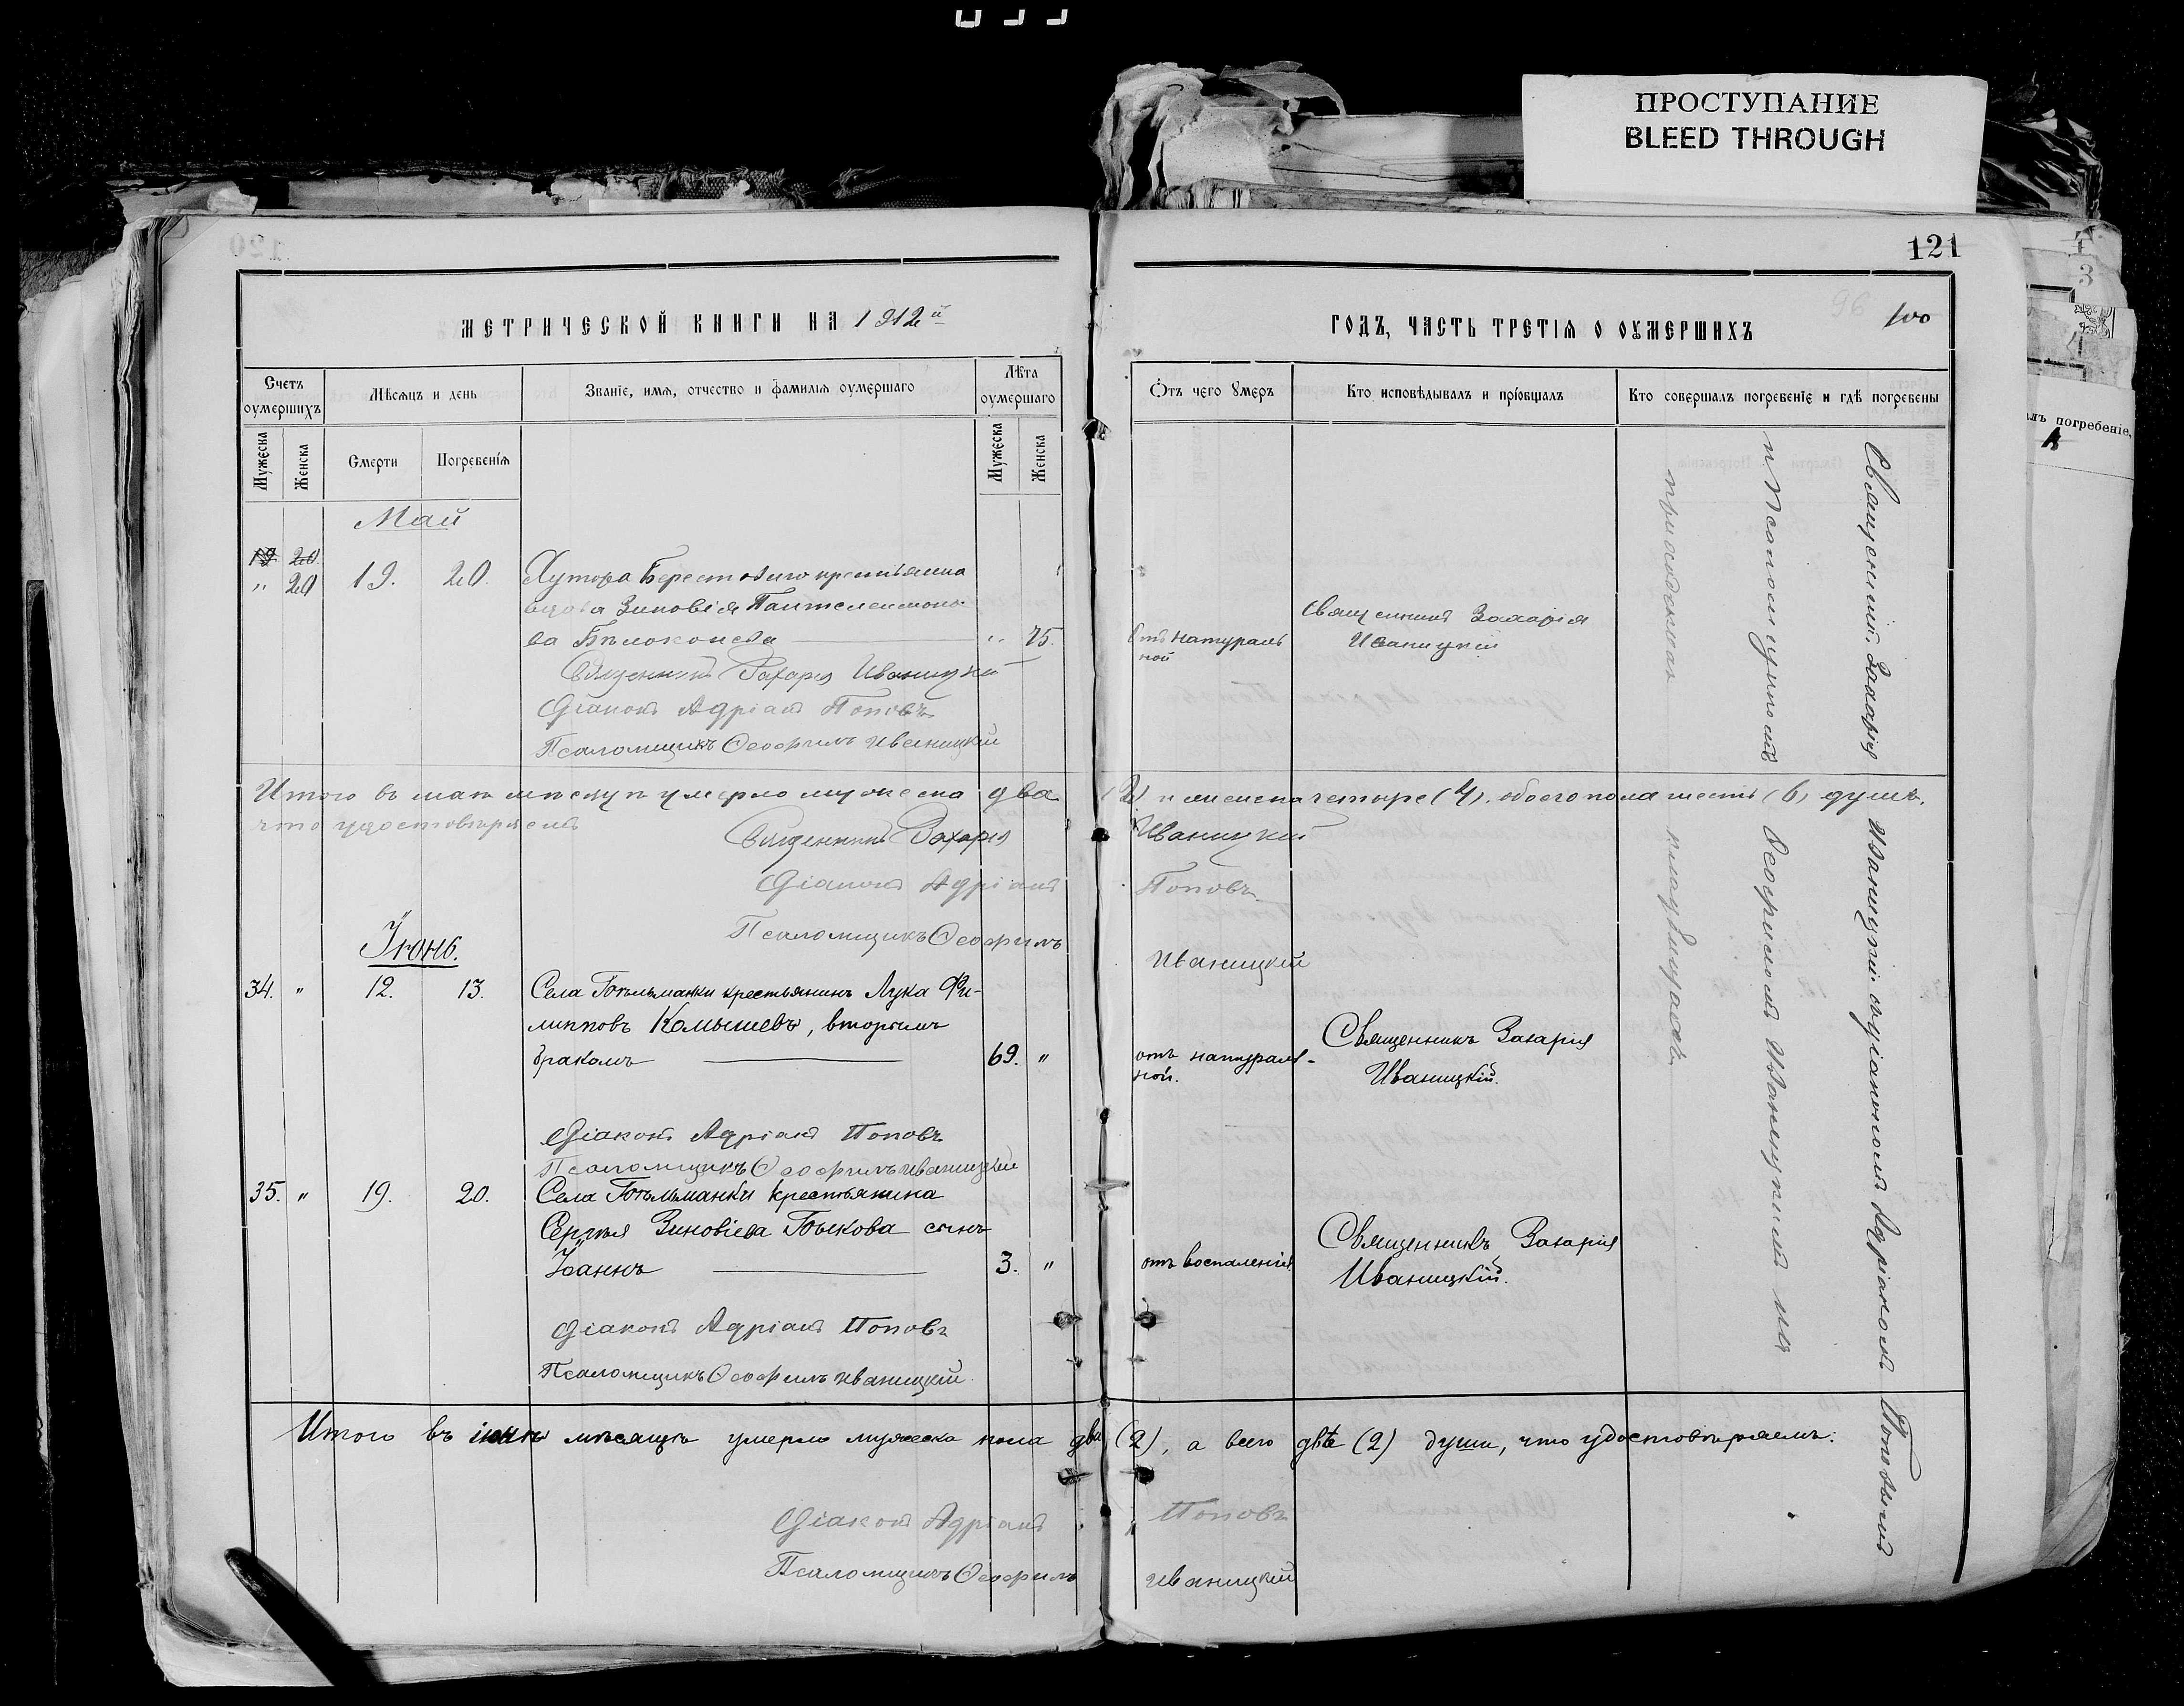 ПРОСТУПАНИЕ
BLEED THROUGH
121
96
100
МЕТРИЧЕСКОЙ КНИГИ НА 1912й
ГОДЪ, ЧАСТЬ ТРЕТІЯ О ОУМЕРШИХЪ
Счетъ оумершихъ
Мѣсяцъ и день
Званіе, имя, отчество и фамилія оумершаго
Лѣта оумершаго
Отъ чего умеръ
Кто исповѣдывалъ и пріобщалъ
Кто совершалъ погребеніе и гдѣ погребены
Мужеска
Женска
Смерти
Погребенія
Мужеска
Женска
Май
19 20
" 20 19. 20.
Хутора Берестоваго крестьянина
вдова Зиновія Пантелеимоно-
ва Бѣлоконева " 75.
отъ натураль
ной
Священникъ Захарія
Иваницкій
Священникъ Захарія Иваницкій
Діаконъ Адріанъ Поповъ
Псаломщикъ Ѳеофилъ Иваницкій
Итого въ маѣ мѣсяцѣ умерло мужеска два (2) и женска четыре (4), обоего пола шесть (6) душъ,
что удостовѣряемъ
Священникъ Захарія Иваницкій
Діаконъ Адріанъ Поповъ
Псаломщикъ Ѳеофилъ Иваницкій
Іюнь.
34. " 12. 13.
Села крестьянинъ Лука Фи-
липповъ Камышевъ, вторымъ
бракомъ 69. "
отъ натураль-
ной.
Священникъ Захарія
Иваницкій.
Діаконъ Адріанъ Поповъ
Псаломщикъ Ѳеофилъ Иваницкій
35. " 19. 20.
Села крестьянина
Сергѣя Зиновіева Быкова сынъ
Іоаннъ 3. "
отъ воспаленія.
Священникъ Захарія
Иваницкій.
Діаконъ Адріанъ Поповъ
Псаломщикъ Ѳеофилъ Иваницкій.
Итого въ іюнѣ мѣсяцѣ умерло мужеска пола два (2), а всего двѣ (2) души, что удостовѣряемъ:
Діаконъ Адріанъ Поповъ
Псаломщикъ Ѳеофилъ Иваницкій
Священникъ Захарія Иваницкій съ діакономъ Адріаномъ Поповымъ
и псаломщикомъ Ѳеофиломъ Иваницкимъ на
приходскомъ кладбищѣ
лъ погребеніе,